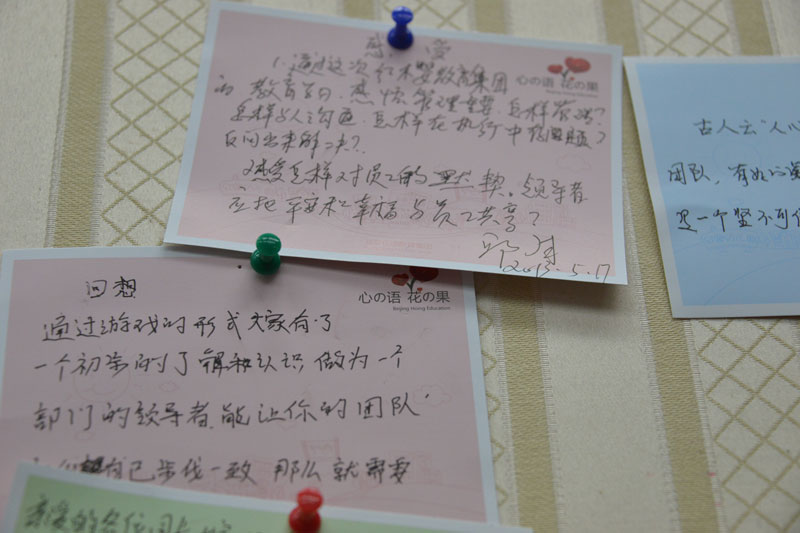 感受
心の语 花の果
1. 通过这次红木婴教育集团
的教育学习,感悟管理重要,怎样管理?
怎样与人沟通,怎样在执行中
解决?
2感受怎样对员工的默契。领导者
应把平安和幸福与员工共享?
2013.5.17
回想
心の语 花の果
Beijing Hxiong Education
通过游戏的形式大家有了
一个初步的了解和认识,做为一个
部门的领导者,能让你的团队
自己步伐一致 那么就需要
亲爱的各位
古人云“人心
团队,有如
是一个坚不可